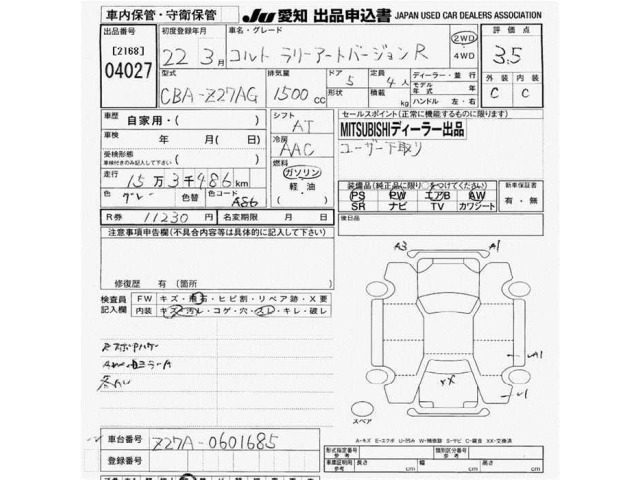 車内保管・守衛保管 JU 愛知 出品申込書 JAPAN USED CAR DEALERS ASSOCIATION
出品番号 初度登録年月 車名・グレード 2WD 評価点
[2168] 22年 3月 コルト ラリーアートバージョンR ・4WD 3.5
04027 型式 排気量 ドア 定員 ディーラー・並行 外装 内装
CBA-Z27AG 1500cc 5 4人 モデル年式 年 C C
形状 積載 kg ハンドル 左・右
車歴 自家用・( ) シフト AT セールスポイント(正常に機能するものに限ります)
車検 年 月( 日) 冷房 AAC MITSUBISHIディーラー出品
受検形態 ( ) ユーザー下取り
車検付きのみ記入して下さい 燃料
走行 15万3千486km ガソリン
色 グレー 色替 色コード A86 軽油 ( )
装備品(純正品に限り○をつけてください) 新車保証書
PS PW エアB AW 有・無
SR ナビ TV カワシート
R券 11230円 名変期限 月 日 後日品
注意事項申告欄(不具合内容等は具体的に記入して下さい)
A3 A1
修復歴 有 (箇所
検査員記入欄 FW キズ・飛石・ヒビ割・リペア跡・X要
内装 キズ・汚レ・コゲ・穴・スレ・キレ・破レ
A1
XX
スペア
A-キズ E-エクボ U-凹み W-補修跡 S-サビ C-腐食 XX-交換済
車台番号 Z27A-0601685
登録番号
形式指定番号 参考 類別区分番号 参考
車庫証明用 参考 長さ cm 幅 cm 高さ cm